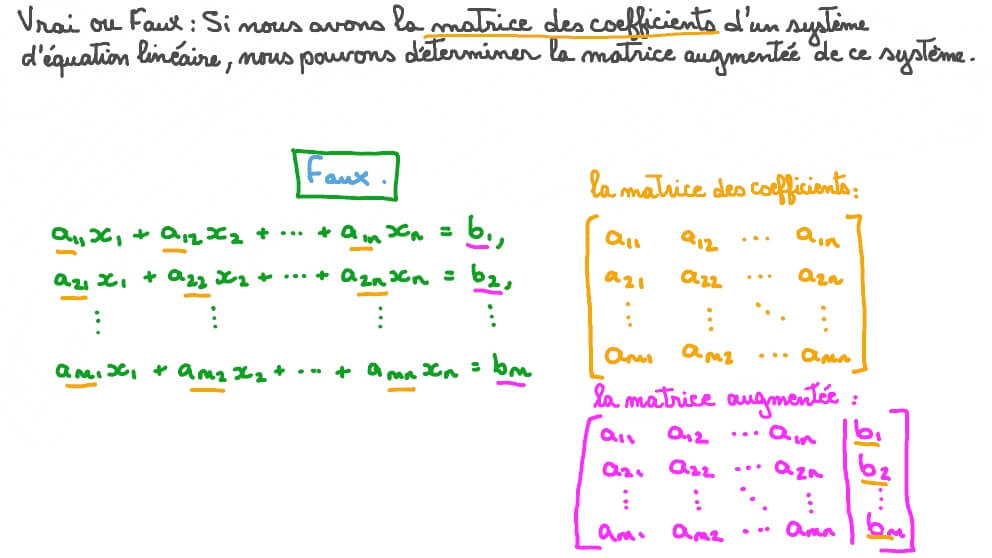 Vrai ou Faux : Si nous avons la matrice des coefficients d'un système
d'équation linéaire, nous pouvons déterminer la matrice augmentée de ce système.
Faux.
a₁₁x₁ + a₁₂x₂ + ... + a₁ₙxₙ = b₁,
a₂₁x₁ + a₂₂x₂ + ... + a₂ₙxₙ = b₂,
⋮ ⋮ ⋮ ⋮
aₘ₁x₁ + aₘ₂x₂ + ... + aₘₙxₙ = bₘ
la matrice des coefficients :
a₁₁ a₁₂ ... a₁ₙ
a₂₁ a₂₂ ... a₂ₙ
⋮ ⋮ ⋱ ⋮
aₘ₁ aₘ₂ ... aₘₙ
la matrice augmentée :
a₁₁ a₁₂ ... a₁ₙ | b₁
a₂₁ a₂₂ ... a₂ₙ | b₂
⋮ ⋮ ⋱ ⋮ | ⋮
aₘ₁ aₘ₂ ... aₘₙ | bₘ